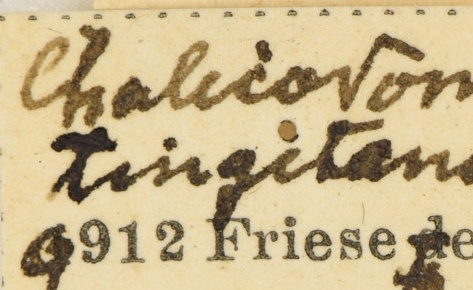 Chalicodom
tingitana
♀ 1912 Friese de